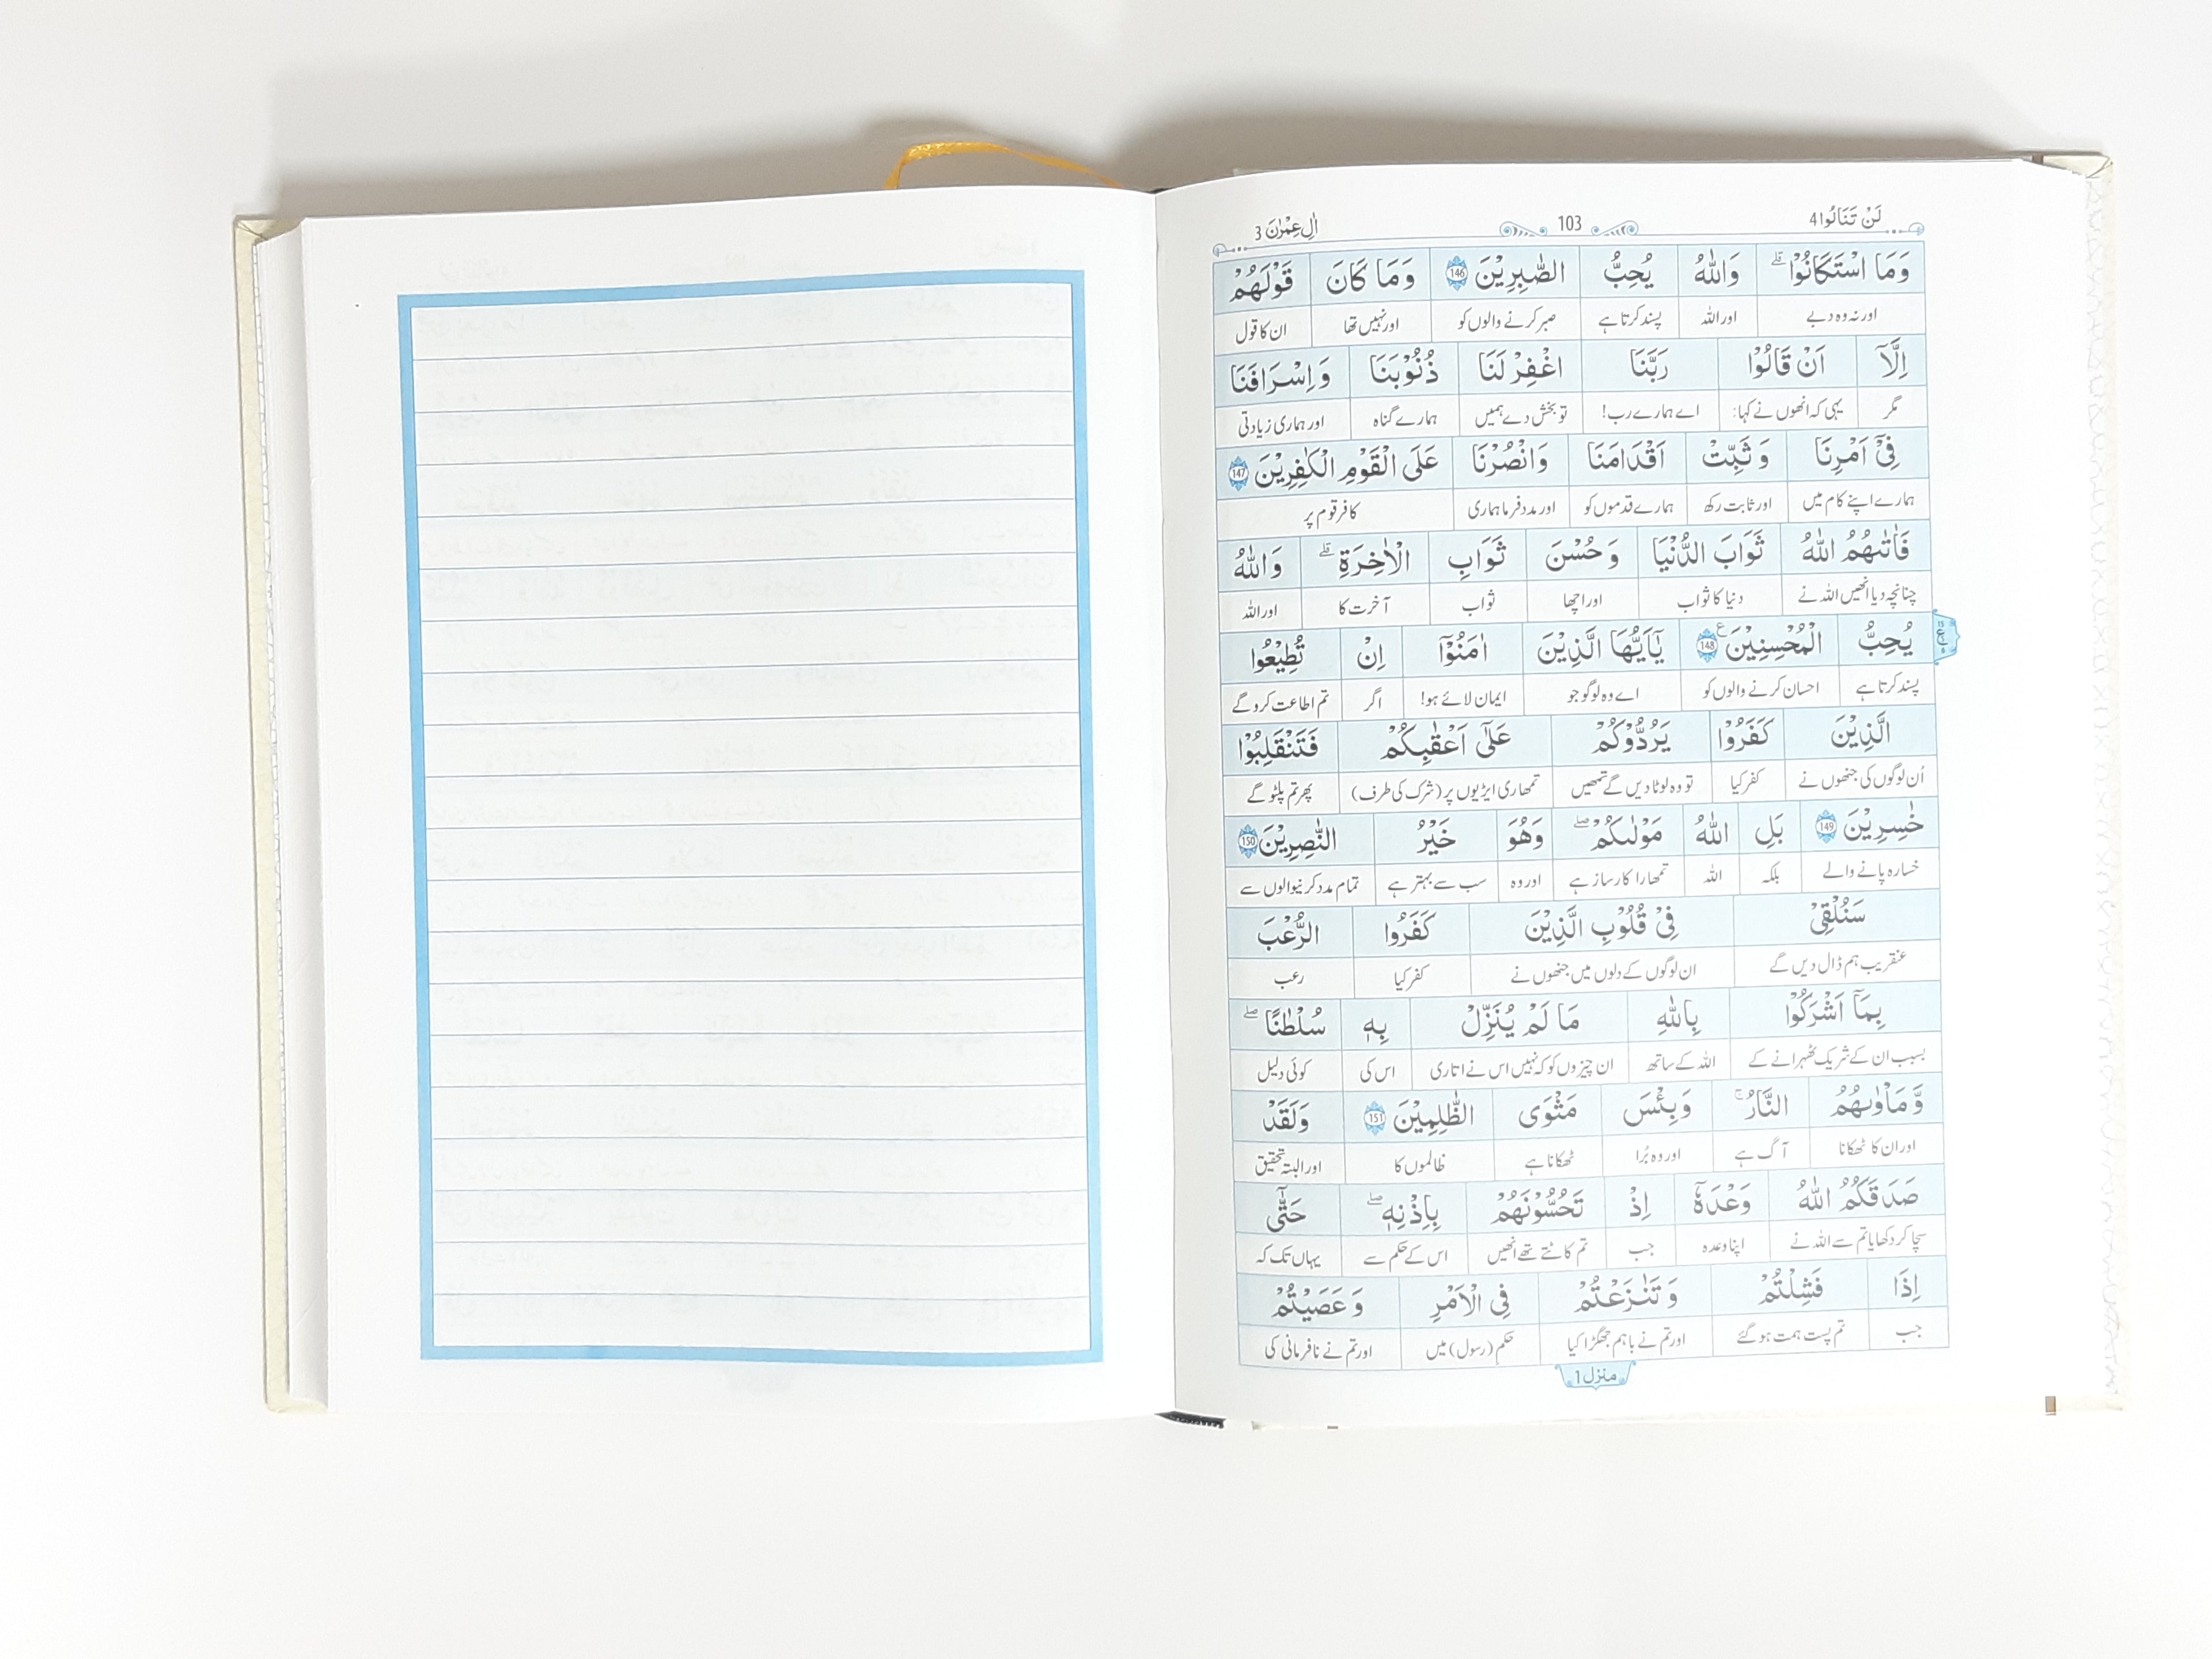 لَنْ تَنَالُوا 4 103 اٰلِ عِمْرٰنَ 3
وَمَا اسْتَكَانُوْا ؕ وَاللّٰهُ يُحِبُّ الصّٰبِرِيْنَ 146 وَمَا كَانَ قَوْلَهُمْ
اور نہ وہ دبے اور اللہ پسند کرتا ہے صبر کرنے والوں کو اور نہیں تھا ان کا قول
اِلَّاۤ اَنْ قَالُوْا رَبَّنَا اغْفِرْ لَنَا ذُنُوْبَنَا وَاِسْرَافَنَا
مگر یہی کہ انھوں نے کہا: اے ہمارے رب! تو بخش دے ہمیں ہمارے گناہ اور ہماری زیادتی
فِيْۤ اَمْرِنَا وَ ثَبِّتْ اَقْدَامَنَا وَانْصُرْنَا عَلَى الْقَوْمِ الْكٰفِرِيْنَ 147
ہمارے اپنے کام میں اور ثابت رکھ ہمارے قدموں کو اور مدد فرما ہماری کافر قوم پر
فَاٰتٰىهُمُ اللّٰهُ ثَوَابَ الدُّنْيَا وَ حُسْنَ ثَوَابِ الْاٰخِرَةِ ؕ وَاللّٰهُ
چنانچہ دیا انھیں اللہ نے دنیا کا ثواب اور اچھا ثواب آخرت کا اور اللہ
يُحِبُّ الْمُحْسِنِيْنَ 148 يٰۤاَيُّهَا الَّذِيْنَ اٰمَنُوْۤا اِنْ تُطِيْعُوا
پسند کرتا ہے احسان کرنے والوں کو اے وہ لوگو جو ایمان لائے ہو! اگر تم اطاعت کرو گے
الَّذِيْنَ كَفَرُوْا يَرُدُّوْكُمْ عَلٰۤى اَعْقٰبِكُمْ فَتَنْقَلِبُوْا
اُن لوگوں کی جنھوں نے کفر کیا تو وہ لوٹا دیں گے تمھیں تمھاری ایڑیوں پر (شرک کی طرف) پھر تم پلٹو گے
خٰسِرِيْنَ 149 بَلِ اللّٰهُ مَوْلٰىكُمْ ۖ وَهُوَ خَيْرُ النّٰصِرِيْنَ 150
خسارہ پانے والے بلکہ اللہ تمھارا کارساز ہے اور وہ سب سے بہتر ہے تمام مدد کرنیوالوں سے
سَنُلْقِيْ فِيْ قُلُوْبِ الَّذِيْنَ كَفَرُوا الرُّعْبَ
عنقریب ہم ڈال دیں گے ان لوگوں کے دلوں میں جنھوں نے کفر کیا رعب
بِمَاۤ اَشْرَكُوْا بِاللّٰهِ مَا لَمْ يُنَزِّلْ بِهٖ سُلْطٰنًا ۖ
بسبب ان کے شریک ٹھہرانے کے اللہ کے ساتھ ان چیزوں کو کہ نہیں اس نے اتاری اس کی کوئی دلیل
وَّمَاْوٰىهُمُ النَّارُ ۚ وَبِئْسَ مَثْوَى الظّٰلِمِيْنَ 151 وَلَقَدْ
اور ان کا ٹھکانا آگ ہے اور وہ بُرا ٹھکانا ہے ظالموں کا اور البتہ تحقیق
صَدَقَكُمُ اللّٰهُ وَعْدَهٗۤ اِذْ تَحُسُّوْنَهُمْ بِاِذْنِهٖ ۖ حَتّٰۤى
سچا کر دکھایا تم سے اللہ نے اپنا وعدہ جب تم کاٹتے تھے انھیں اس کے حکم سے یہاں تک کہ
اِذَا فَشِلْتُمْ وَ تَنٰزَعْتُمْ فِي الْاَمْرِ وَ عَصَيْتُمْ
جب تم پست ہمت ہو گئے اور تم نے باہم جھگڑا کیا حکم (رسول) میں اور تم نے نافرمانی کی
منزل 1